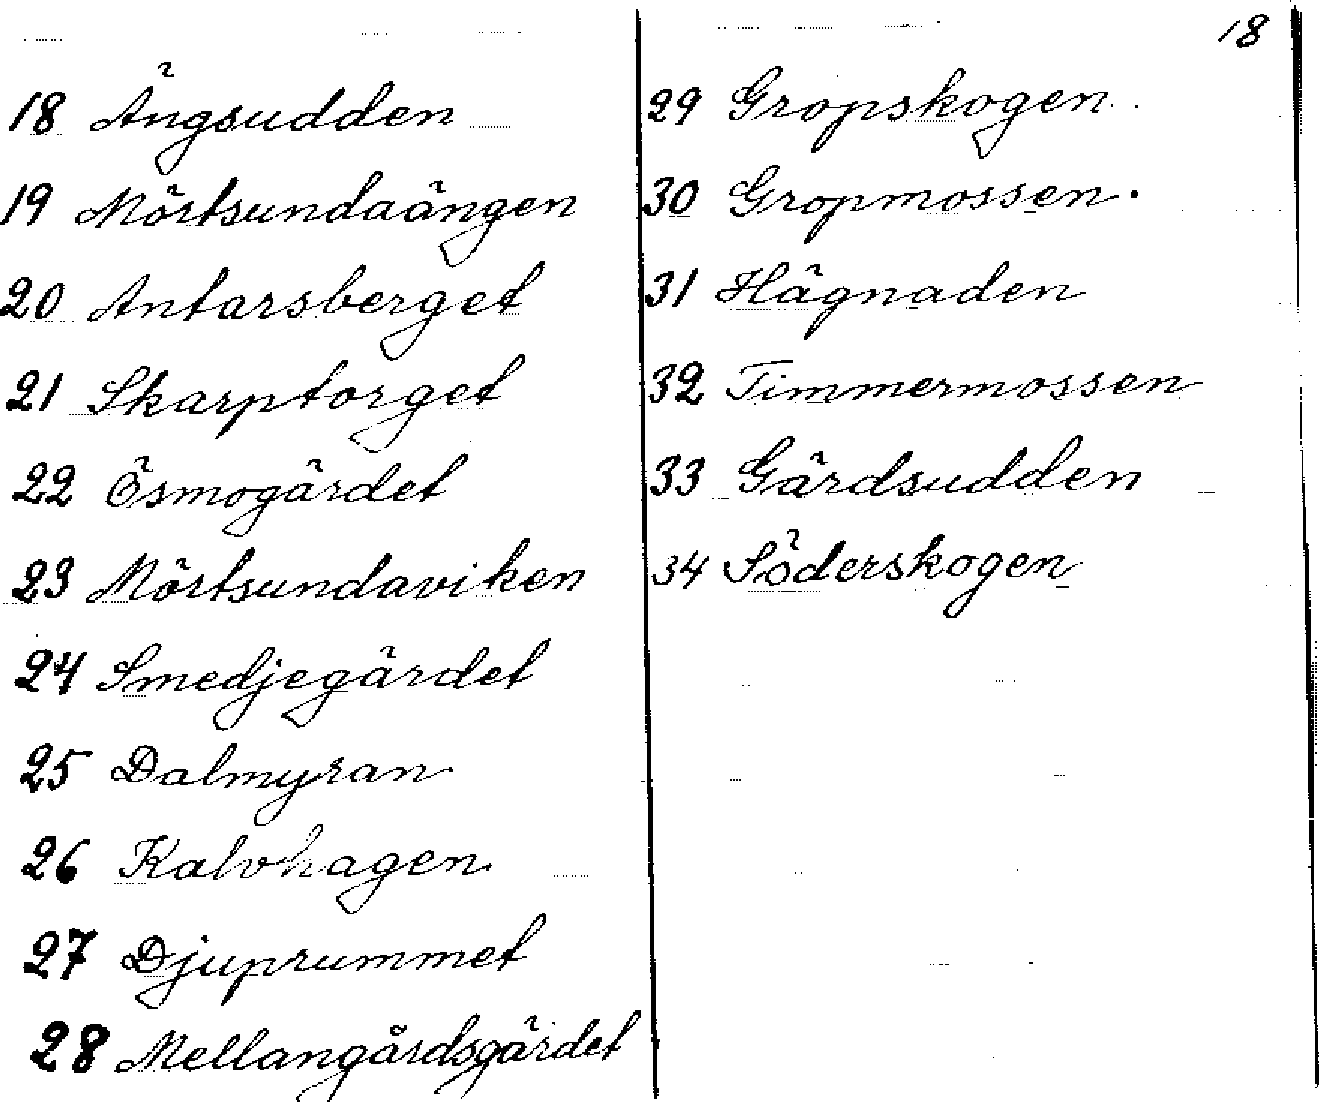 18
18 Ängsudden
19 Mörtsundaängen
20 Antarsberget
21 Skarptorget
22 Ösmogärdet
23 Mörtsundaviken
24 Smedjegärdet
25 Dalmyran
26 Kalvhagen
27 Djuprummet
28 Mellangårdsgärdet
29 Gropskogen
30 Gropmossen.
31 Hägnaden
32 Timmermossen
33 Gärdsudden
34 Söderskogen